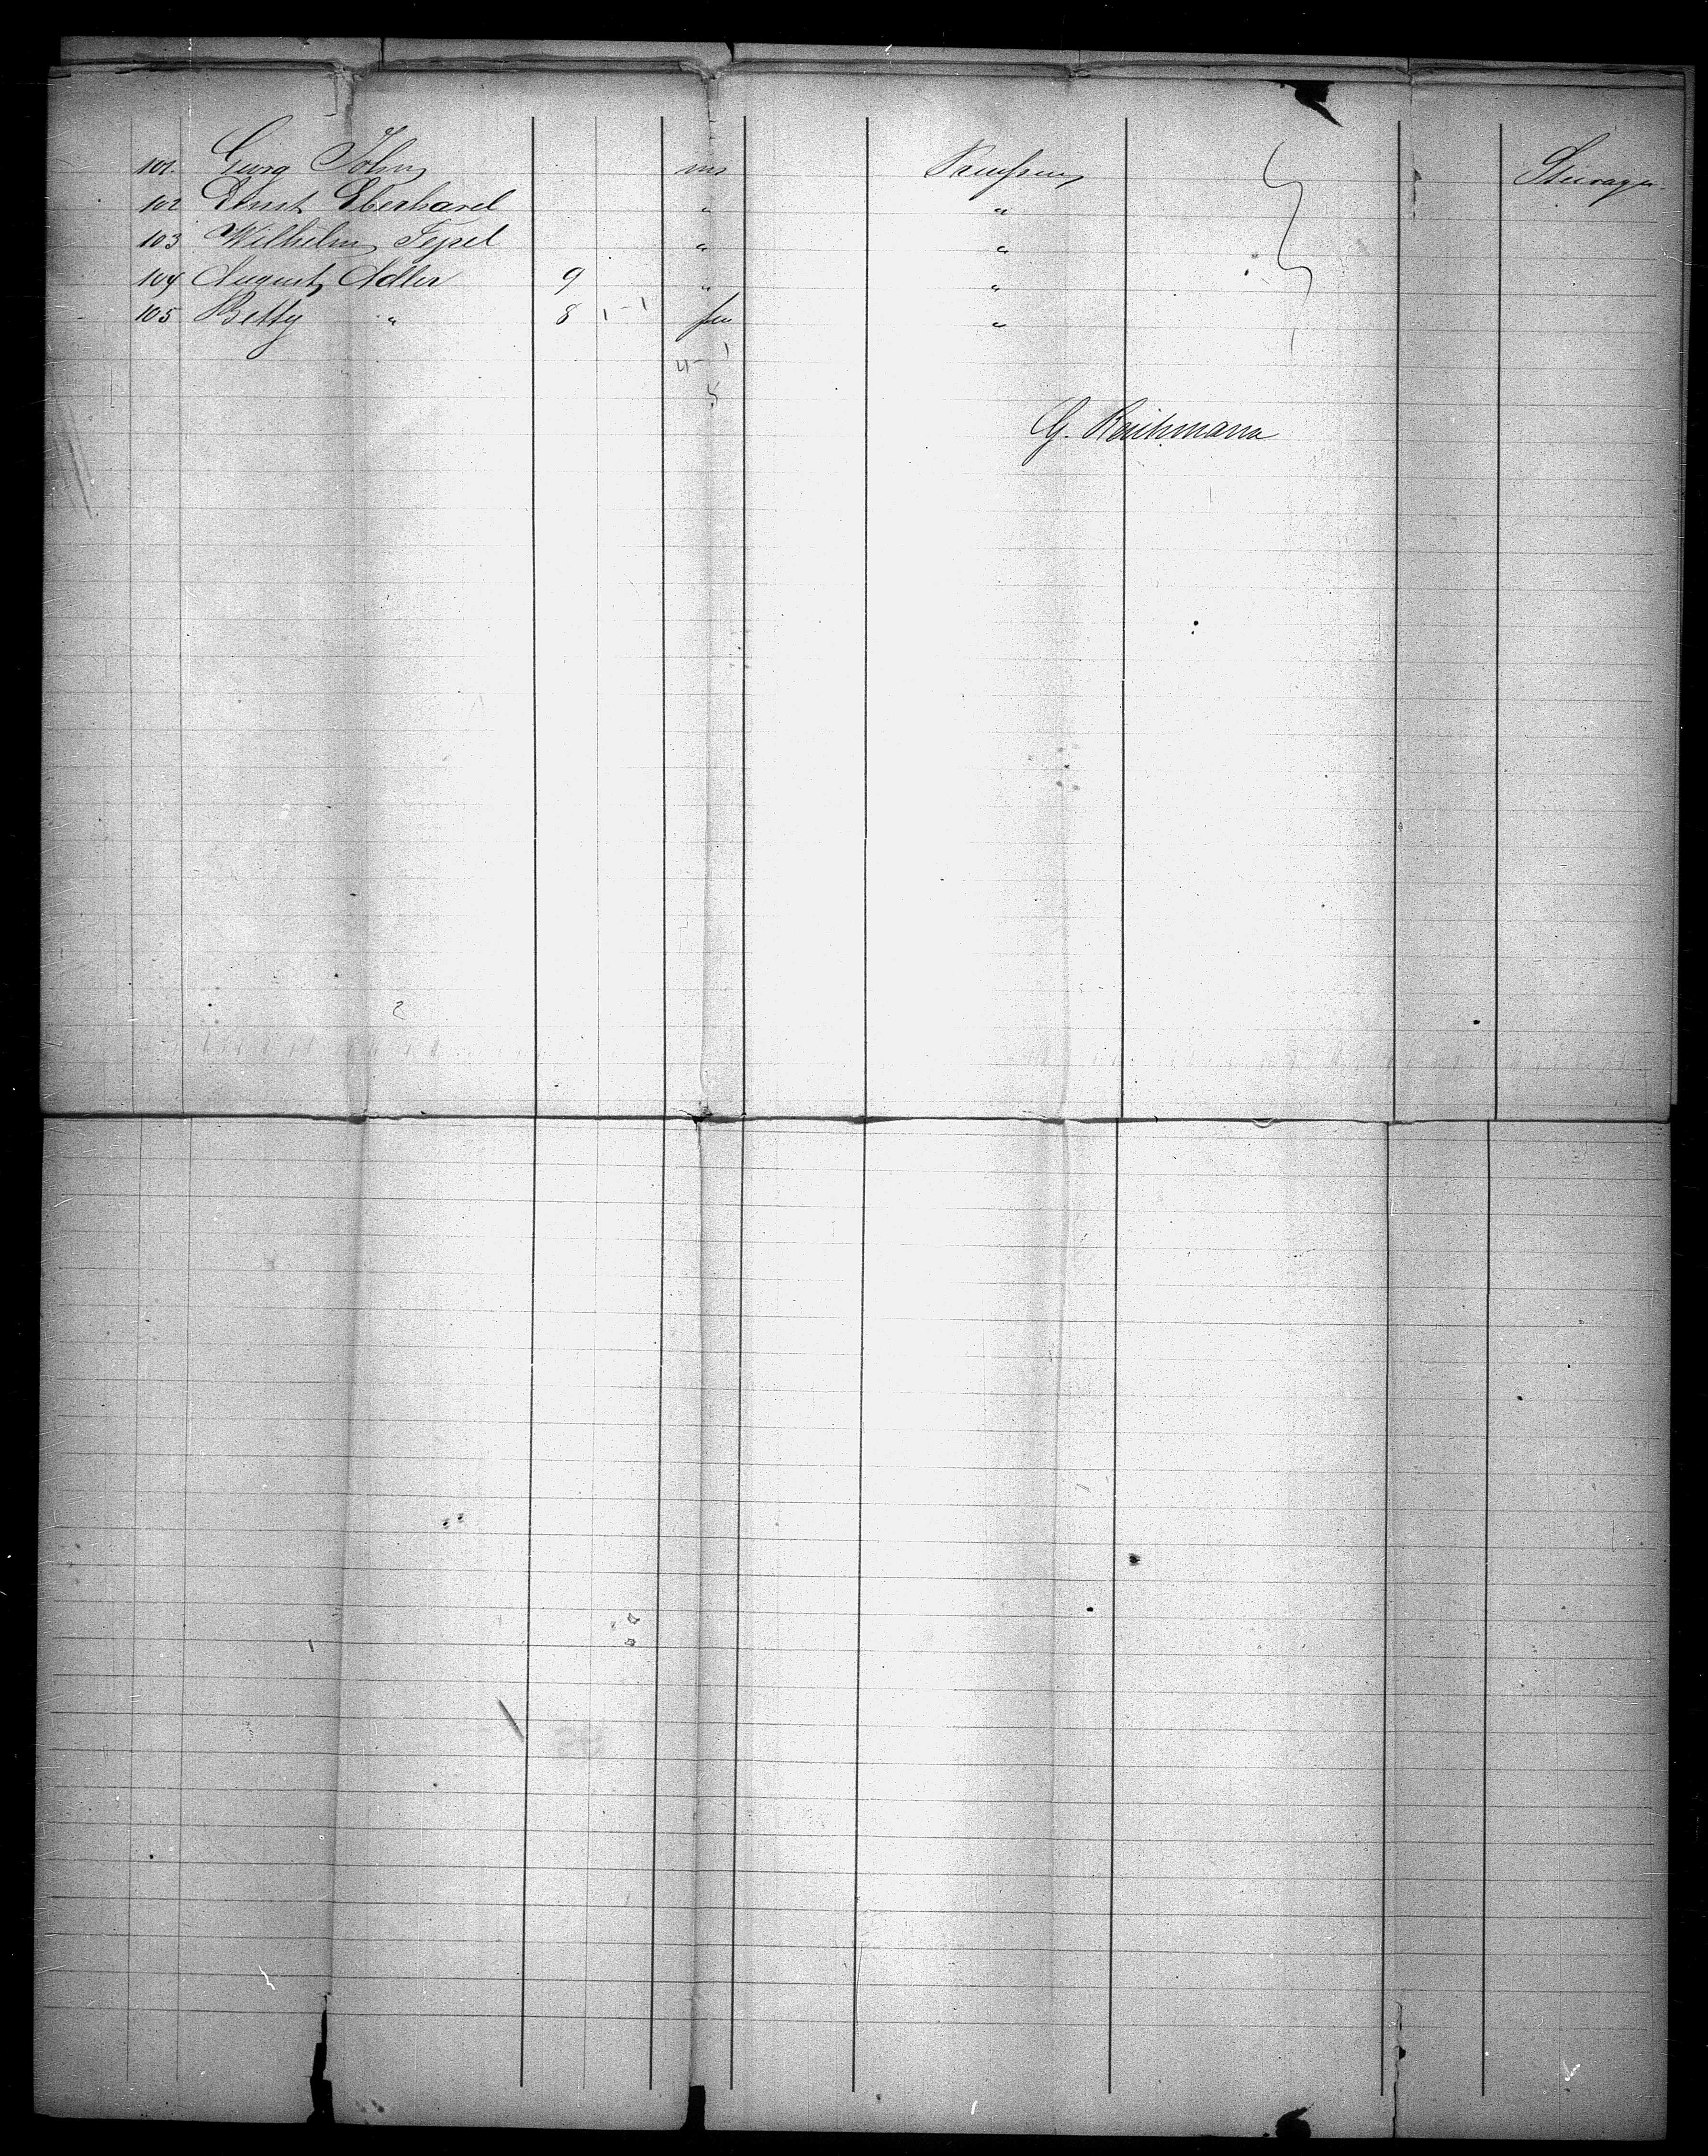 101. Georg John m Preußen Steerage
102 Ernst Eberhard " "
103 Wilhelm Tepel " "
104 August Adler 9 " "
105 Betty " 8 1-1 fm "
4-1
5
G. Reichmann